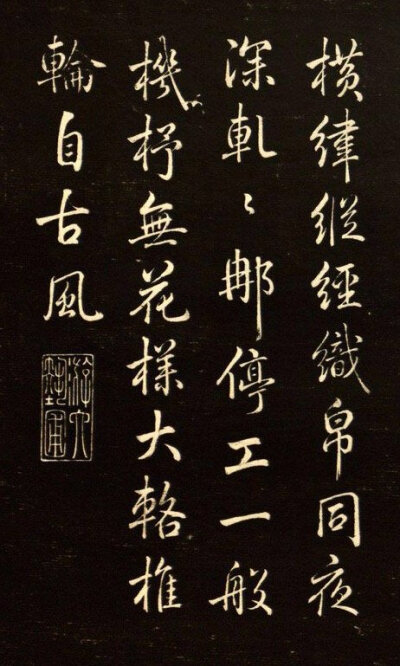 橫緯縱經織帛同夜
深軋〻那停工一般
機杼無花樣大輅椎
輪自古風
游六藝圃